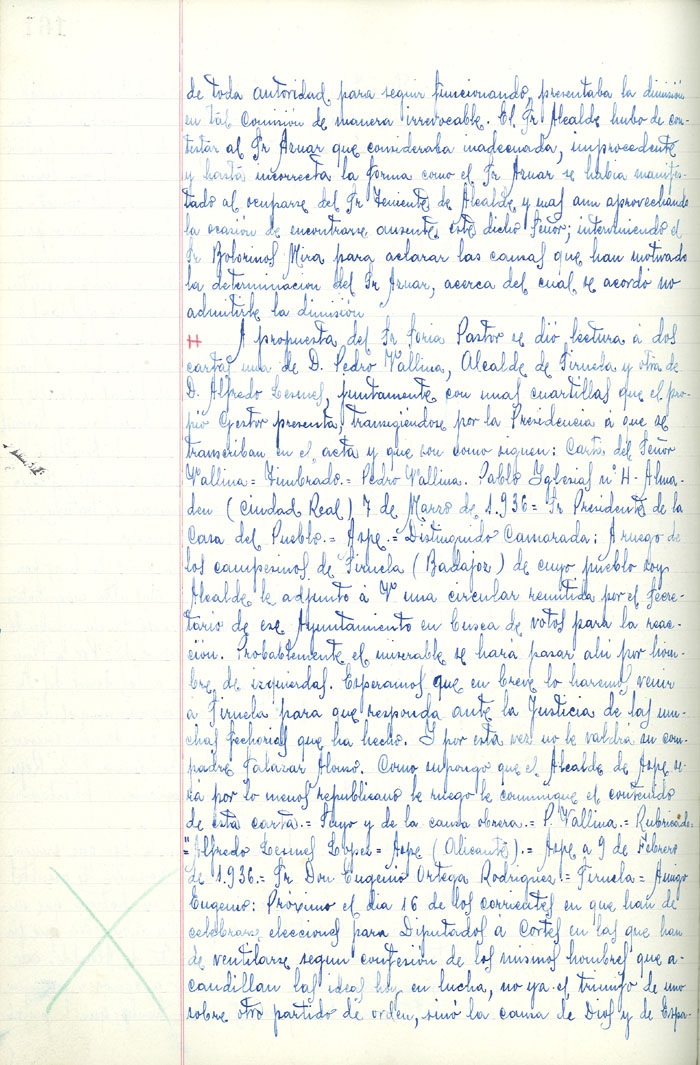 de toda autoridad para seguir funcionando, presentaba la dimisión
en tal Comisión de manera irrevocable. El Sr Alcalde hubo de con-
testar al Sr Aznar que consideraba inadecuada, improcedente
y hasta incorrecta la forma como el Sr Aznar se habia manifes-
tado al ocuparse del Sr Teniente de Alcalde y mas aun aprovechando
la ocasión de encontrarse ausente este dicho Señor; interviniendo el
Sr Botorinos Mira para aclarar las causas que han motivado
la determinacion del Sr Aznar, acerca del cual se acordó no
admitirle la dimisión
A propuesta del Sr Soria Pastor se dió lectura à dos
cartas una de D. Pedro Vallina, Alcalde de Siruela y otra de
D. Alfredo Lesmes, juntamente con unas cuartillas que el pro-
pio Gestor presenta, transigiendose por la Presidencia á que se
transcriban en el acta y que son como siguen: Carta del Señor
Vallina = Timbrado.= Pedro Vallina. Pablo Iglesias nº 4 - Alma-
den (Ciudad Real) 7 de Marzo de 1.936 = Sr Presidente de la
Casa del Pueblo. = Aspe. = Distinguido Camarada: A ruego de
los campesinos de Siruela (Badajoz) de cuyo pueblo soy
Alcalde le adjunto á V una circular remitida por el Secre-
tario de ese Ayuntamiento en busca de votos para la reac-
ción. Probablemente el miserable se hará pasar ahi por hom-
bre de izquierdas. Esperamos que en breve lo haremos venir
a Siruela para que responda ante la Justicia de las mu-
chas fechorias que ha hecho. Y por esta vez no le valdrá su com-
padre Salazar Alonso. Como supongo que el Alcalde de Aspe se-
rá por lo menos republicano le ruego le comunique el contenido
de esta carta. = Suyo y de la causa obrera. = P. Vallina. = Rubricado =
"Alfredo Lesmes Lopez = Aspe (Alicante). = Aspe a 9 de Febrero
de 1.936.= Sr. Don Eugenio Ortega Rodriguez = Siruela = Amigo
Eugenio: Próximo el dia 16 de los corrientes en que han de
celebrarse elecciones para Diputados à Cortes en las que han
de ventilarse segun confesión de los mismos hombres que a-
caudillan las ideas hoy en lucha, no ya el triunfo de uno
sobre otro partido de orden, sinó la causa de Dios y de Espa-